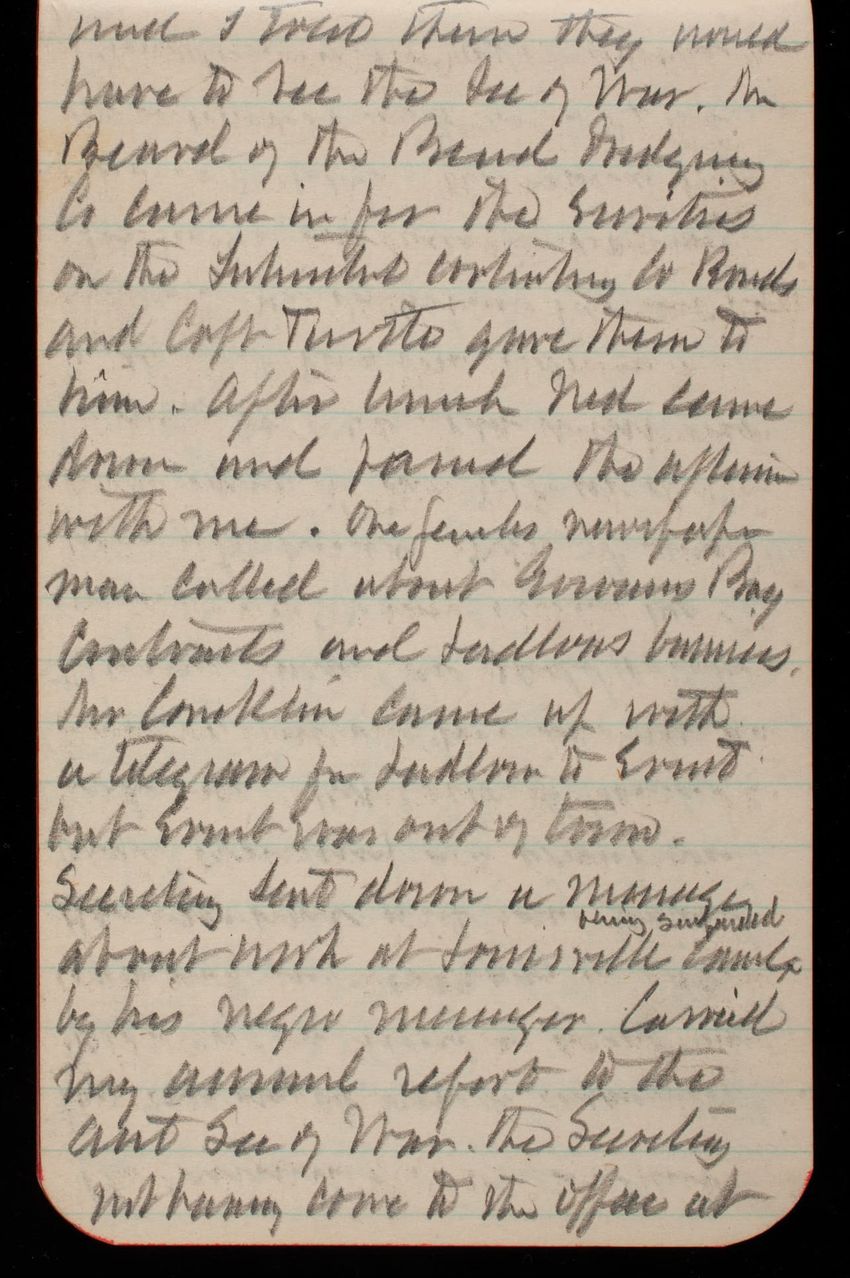 and I told them they would
have to see the Sec of War. Mr
Beard of the Beard Dredging
Co came in for the securities
on the Co Bonds
and Capt Turtle gave them to
him. After lunch Ned came
down and passed the afternoon
with me. One newspaper
man called about Gowanus Bay
Contracts and Ludlows business.
Mr Conklin came up with
a telegram for Ludlow to Ernst
but Ernst was out of town.
Secretary sent down a message
about work at Louisville canal
being suspended
by his negro messenger. Carried
my annual report to the
asst Sec of War. the Secretary
not having come to the office at